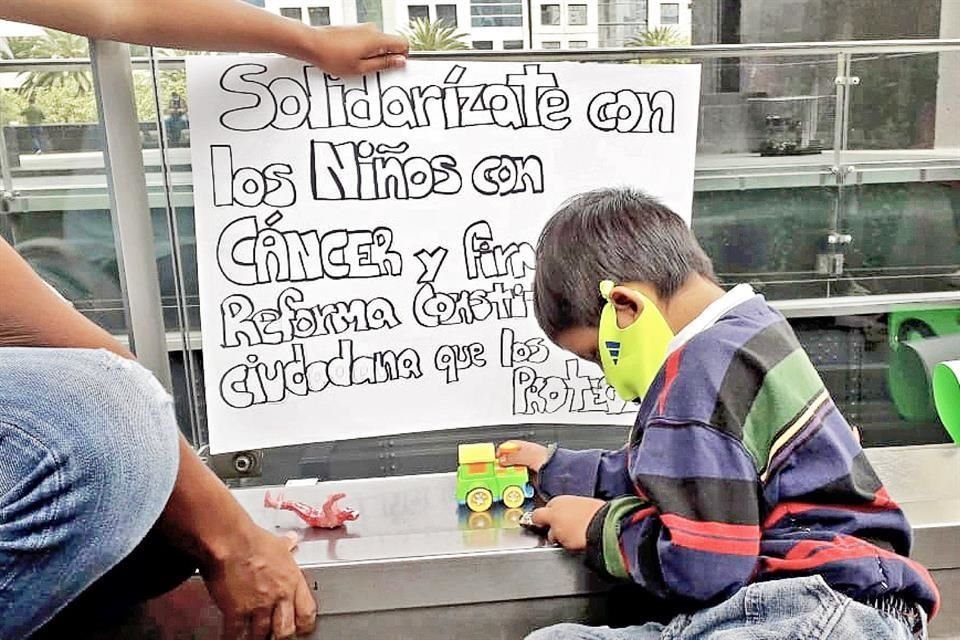 Solidarízate con
los Niños con
CÁNCER y firm
Reforma Constit
ciudadana que los
PROTEG